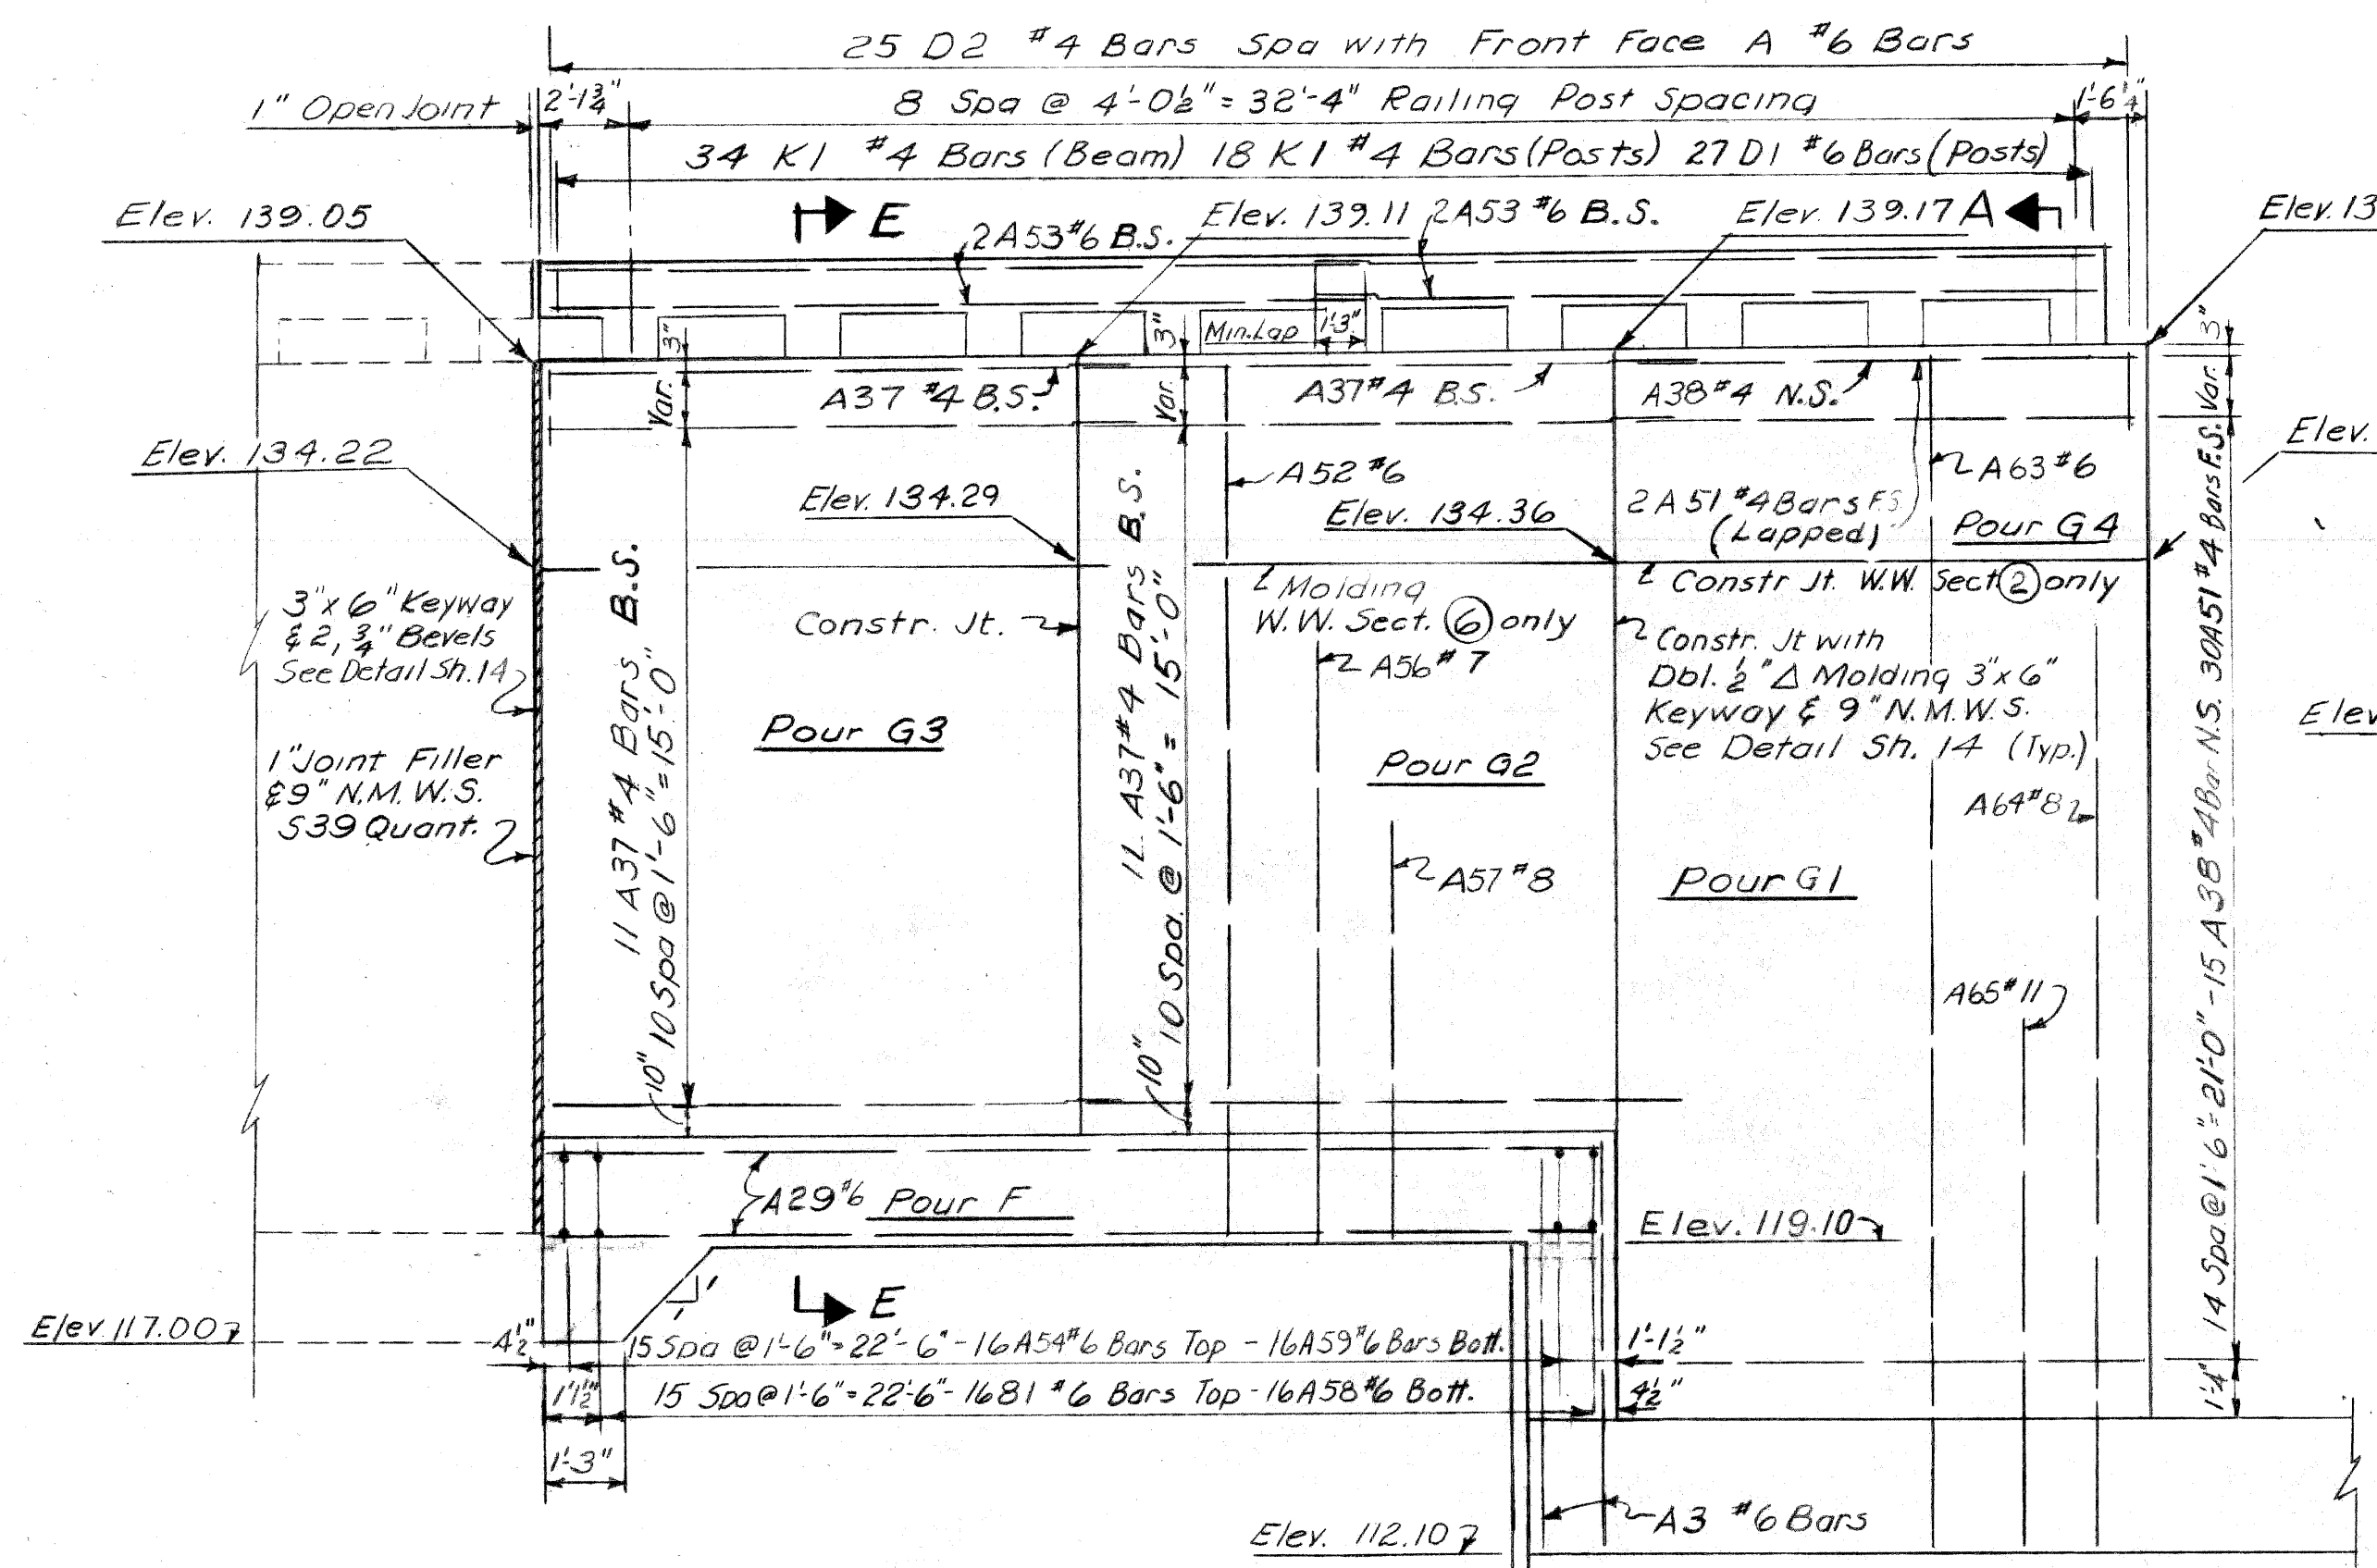 25 D2 #4 Bars Spa with Front Face A #6 Bars
1" Open Joint
2'-1¾"
8 Spa @ 4'-0½" = 32'-4" Railing Post Spacing
1'-6¼"
34 K1 #4 Bars (Beam) 18 K1 #4 Bars (Posts) 27 D1 #6 Bars (Posts)
Elev. 139.05
E
2A53 #6 B.S.
Elev. 139.11
2A53 #6 B.S.
Elev. 139.17
A
Elev. 13
3"
3"
Min. Lap
1'-3"
3"
Var.
A37 #4 B.S.
Var.
A37 #4 B.S.
A38 #4 N.S.
Var.
Elev. 134.22
Elev. 134.29
A52 #6
Elev. 134.36
2 A51 #4 Bars F.S.
(Lapped)
A63 #6
Pour G4
Elev.
3" x 6" Keyway
& 2, ¾" Bevels
See Detail Sh. 14
Constr. Jt.
Molding
W.W. Sect. 6 only
Constr Jt. W.W. Sect 2 only
A56 #7
Constr. Jt with
Dbl. ½" Δ Molding 3"x6"
Keyway & 9" N.M.W.S.
See Detail Sh. 14 (Typ.)
Elev
1" Joint Filler
& 9" N.M.W.S.
S39 Quant.
11 A37 #4 Bars B.S.
10" 10 Spa @ 1'-6" = 15'-0"
Pour G3
11 A37 #4 Bars B.S.
10" 10 Spa. @ 1'-6" = 15'-0"
Pour G2
A64 #8
A57 #8
Pour G1
A65 #11
1'-4" 14 Spa @ 1'-6" = 21'-0" - 15 A38 #4 Bar N.S. 30A51 #4 Bars F.S.
A29 #6 Pour F
Elev. 119.10
E
1
1
Elev 117.00
4½"
15 Spa @ 1'-6" = 22'-6" - 16 A54 #6 Bars Top - 16 A59 #6 Bars Bott.
1'-1½"
1'1½"
15 Spa @ 1'-6" = 22'-6" - 16B1 #6 Bars Top - 16 A58 #6 Bott.
4½"
1'-3"
A3 #6 Bars
Elev. 112.10